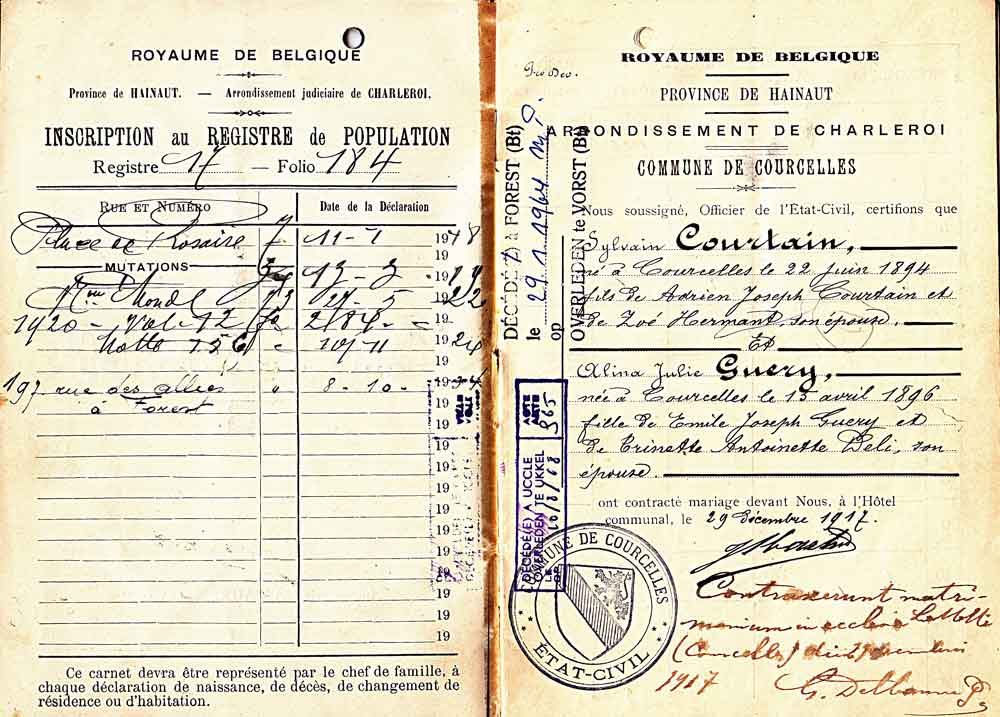 ROYAUME DE BELGIQUE
Province de HAINAUT. — Arrondissement judiciaire de CHARLEROI.
INSCRIPTION au REGISTRE de POPULATION
Registre 17 — Folio 184
RUE ET NUMÉRO Date de la Déclaration
Place de Rosaire 11-1 1918
19
MUTATIONS 13-3 19
27-5 1922
1920
Motte 156 10/11 1924
19
197 rue des alliés " 8-10- 1934
à Forest 19
19
19
19
19
19
19
19
19
19
19
19
Ce carnet devra être représenté par le chef de famille, à
chaque déclaration de naissance, de décès, de changement de
résidence ou d'habitation.
DÉCÉDÉ À FOREST (Bt)
le 29.1.1964
op
OVERLEDEN te VORST (Bt)
DÉCÉDÉ(E) A UCCLE
OVERLEDEN TE UKKEL
LE
OP 10/8/68
ACTE
AKTE 865
ROYAUME DE BELGIQUE
PROVINCE DE HAINAUT
ARRONDISSEMENT DE CHARLEROI
COMMUNE DE COURCELLES
Nous soussigné, Officier de l'Etat-Civil, certifions que
Sylvain Courtain,
né à Courcelles le 22 juin 1894
fils de Adrien Joseph Courtain et
de Zoé Hermant, son épouse.
Et
Alina Julie Guery,
née à Courcelles le 15 avril 1896
fille de Emile Joseph Guery et
de Trinette Antoinette Deli, son
épouse.
ont contracté mariage devant Nous, à l'Hôtel
communal, le 29 Décembre 1917.
COMMUNE DE COURCELLES
ETAT-CIVIL
Contraxerunt matri-
monium in ecclesia La Motte
(Courcelles) die 29 decembri
1917